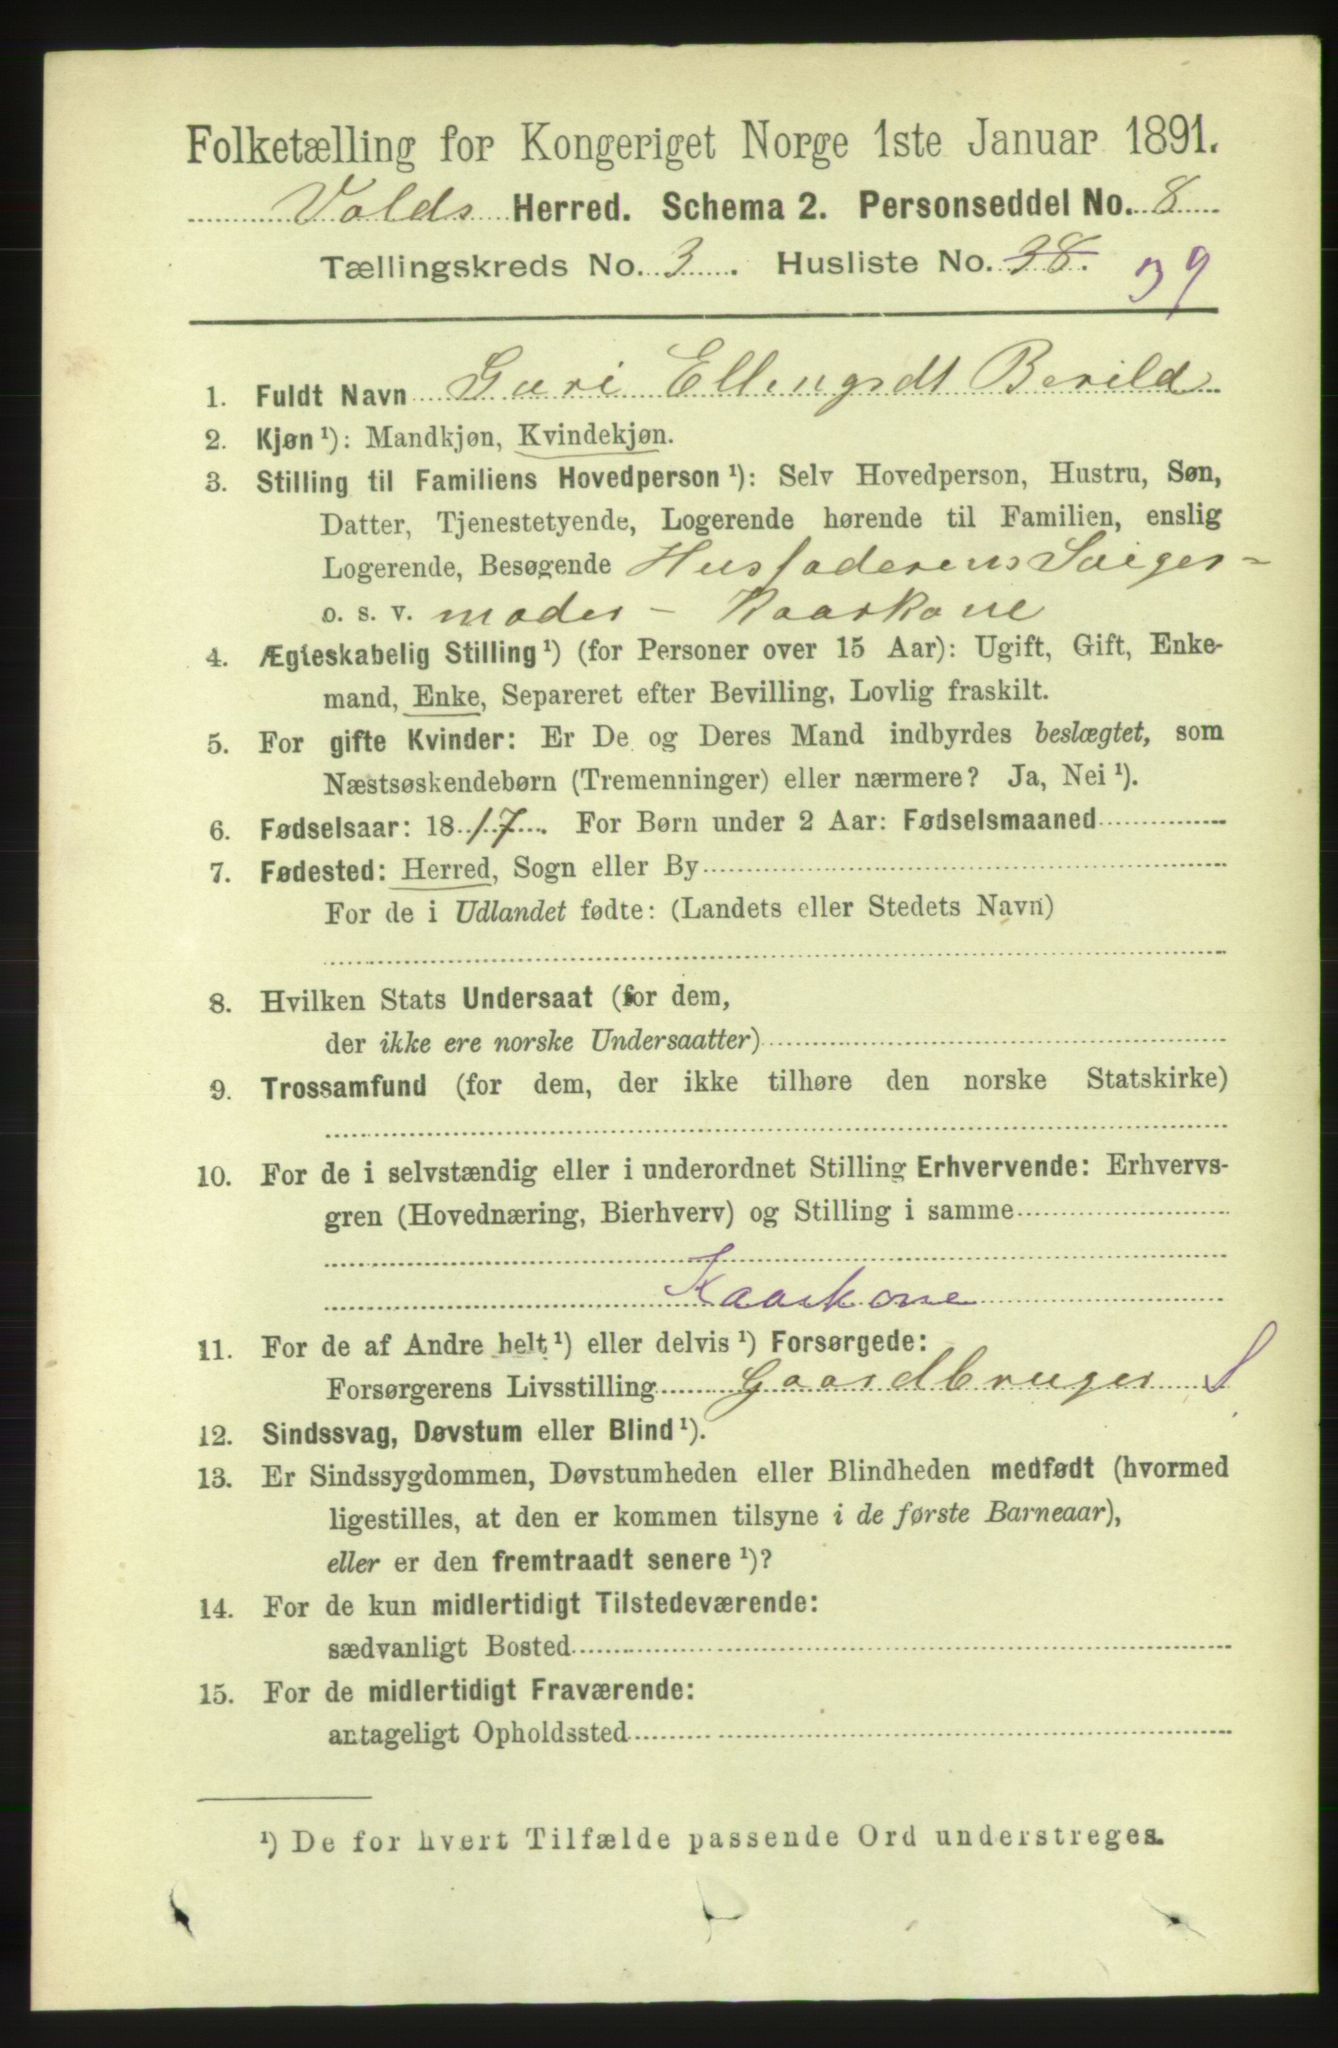 Folketælling for Kongeriget Norge 1ste Januar 1891.
Volds Herred. Schema 2. Personseddel No. 8
Tællingskreds No. 3. Husliste No. 38. 39
1. Fuldt Navn Guri Ellengsdt Berild
2. Kjøn ¹): Mandkjøn, Kvindekjøn.
3. Stilling til Familiens Hovedperson ¹): Selv Hovedperson, Hustru, Søn,
Datter, Tjenestetyende, Logerende hørende til Familien, enslig
Logerende, Besøgende Husfaderens Sviger-
o. s. v. moder - Kaarkone
4. Ægteskabelig Stilling ¹) (for Personer over 15 Aar): Ugift, Gift, Enke-
mand, Enke, Separeret efter Bevilling, Lovlig fraskilt.
5. For gifte Kvinder: Er De og Deres Mand indbyrdes beslægtet, som
Næstsøskendebørn (Tremenninger) eller nærmere? Ja, Nei ¹).
6. Fødselsaar: 1817. For Børn under 2 Aar: Fødselsmaaned
7. Fødested: Herred, Sogn eller By
For de i Udlandet fødte: (Landets eller Stedets Navn)
8. Hvilken Stats Undersaat (for dem,
der ikke ere norske Undersaatter)
9. Trossamfund (for dem, der ikke tilhøre den norske Statskirke)
10. For de i selvstændig eller i underordnet Stilling Erhvervende: Erhvervs-
gren (Hovednæring, Bierhverv) og Stilling i samme
Kaarkone
11. For de af Andre helt ¹) eller delvis ¹) Forsørgede:
Forsørgerens Livsstilling Gaardbruger S
12. Sindssvag, Døvstum eller Blind ¹).
13. Er Sindssygdommen, Døvstumheden eller Blindheden medfødt (hvormed
ligestilles, at den er kommen tilsyne i de første Barneaar),
eller er den fremtraadt senere ¹)?
14. For de kun midlertidigt Tilstedeværende:
sædvanligt Bosted
15. For de midlertidigt Fraværende:
antageligt Opholdssted
¹) De for hvert Tilfælde passende Ord understreges.